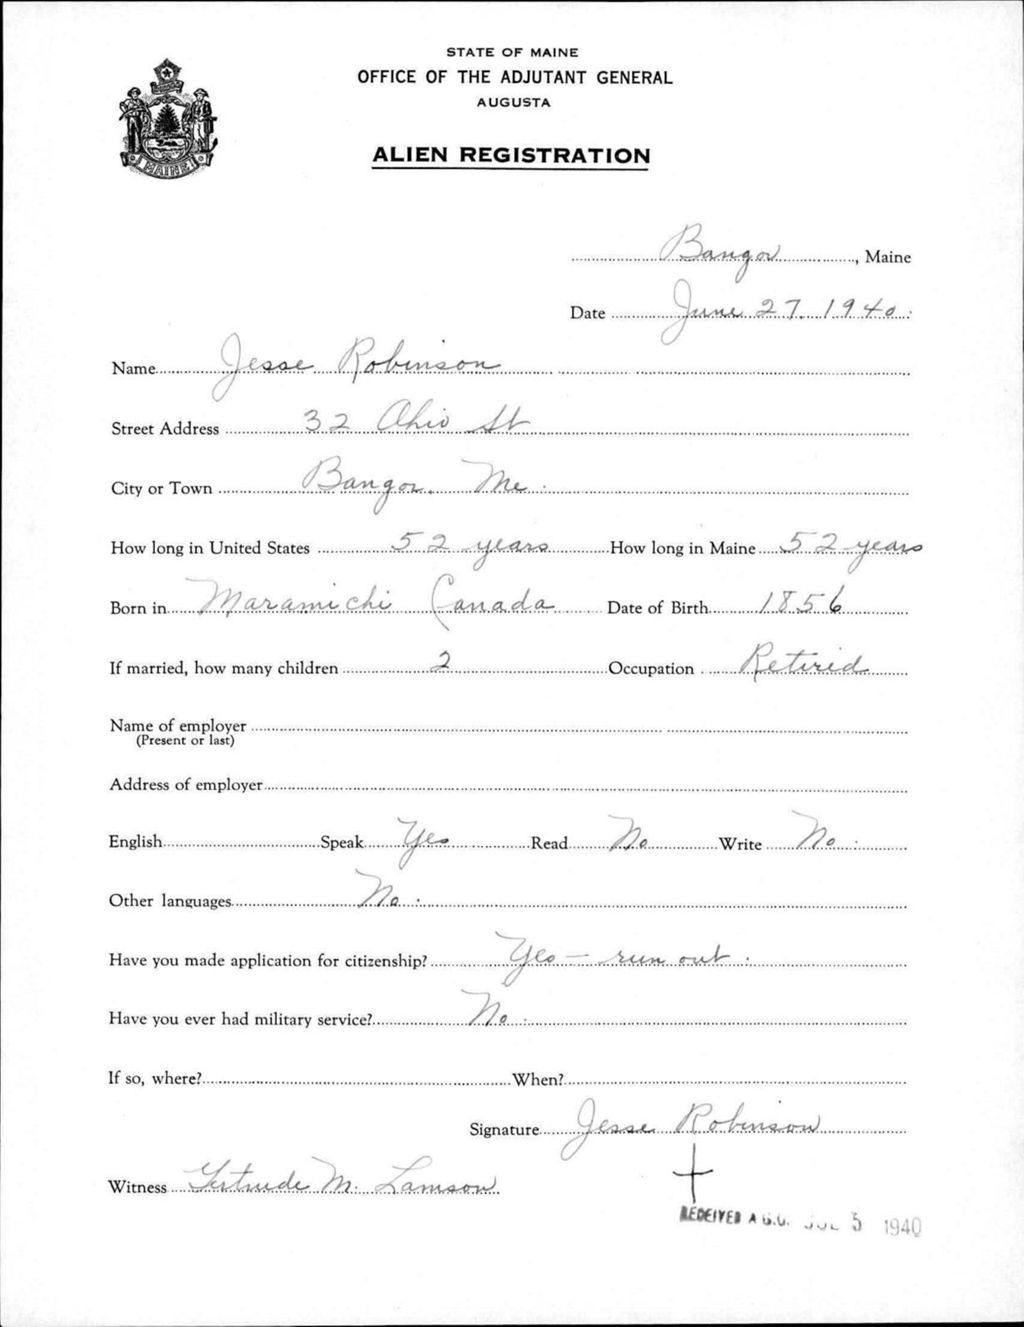 STATE OF MAINE
OFFICE OF THE ADJUTANT GENERAL
AUGUSTA
ALIEN REGISTRATION
MAINE
Bangor, Maine
Date June 27, 1940.
Name Jesse Robinson
Street Address 32 Ohio St
City or Town Bangor, Me.
How long in United States 52 years How long in Maine 52 years
Born in Maramichi Canada Date of Birth 1856
If married, how many children 2 Occupation Retired
Name of employer
(Present or last)
Address of employer
English Speak Yes Read No Write No.
Other languages No.
Have you made application for citizenship? Yes — run out.
Have you ever had military service? No.
If so, where? When?
Signature Jesse Robinson
Witness Gertrude M. Lamson
RECEIVED A.G.O. JUL 5 1940